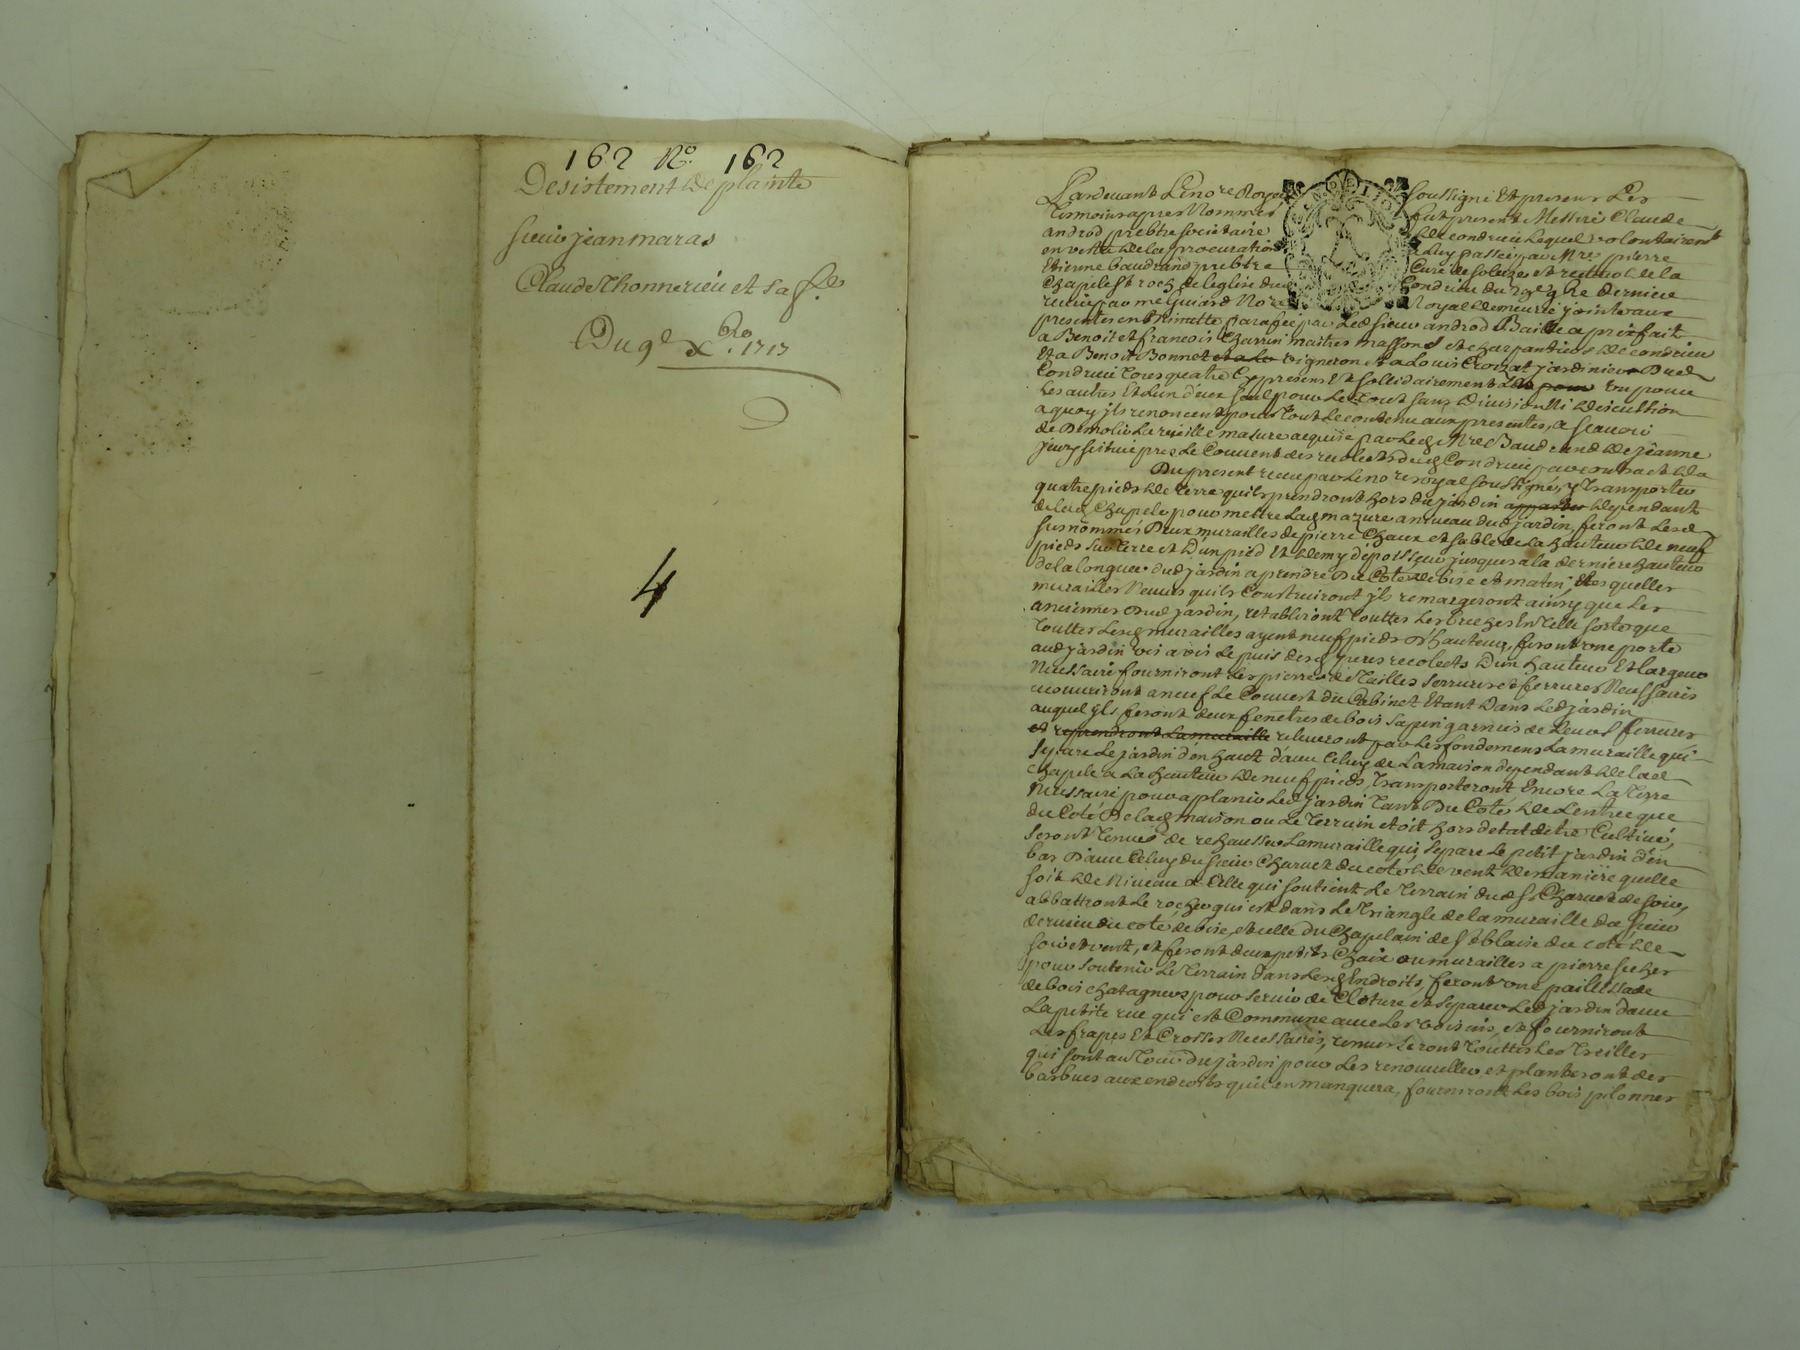 162 No. 162
Desistement de plainte
sieur jean maras
Claude Thonnerieu et sa f.e
Du 9e xbre. 1717
4
Pardevant Le no.re Royal soussigné Et presens Les
temoins apres Nommés fut present Messire Claude
androd prebtre societaire de condrieu Lequel volontairem.t
en vertu de la procuration a Luy passée par M.re pierre
Etienne baudrand prebtre Curé de soleges et recteur de la
Chapele St roch de leglise dud Condrieu du 9bre dernier
receue par me Guiard No.re Royal demeurée jointe aux
presentes en minutte parafée par Led sieur androd Baille a prix fait
a Benoit et francois Charrin maitres massons et charpantiers de condrieu
Et a Benoit Bonnet et a Le vigneron et a Louis Croizat jardinier Dud
Condrieu tous quatre Cy presens Et sollidairement Les pour Un pour
Les autres Et Lun d'eux seul pour Le tout sans Division Ni discution
a quoy jls renoncent pour tout Le contenu aux presentes, a scavoir
de Demolir La vieille masure acquise par Led M.re Baudrand de jeanne
jeury scituée pres Le Couvent des recolets dud Condrieu par contract de la
Du present receu par Le no.re royal soussigné, y transporter
quatre pieds de terre quils prendront hors du jardin apparte dependant
de lad Chapele pour mettre Lad mazure a niveau dud jardin, feront Lesd
surnommés Deux murailles de pierre Chaux et sable de La hauteur de neuf
pieds sur terre et D'un pied Et demy d'epoisseur jusques a la derniere hauteur
de la longueur dud jardin a prendre Du Coté de bise et matin, Lesquelles
murailles Neuves quils Construiront jls remargeront ainsy que Les
anciennes Dud jardin, retabliront toutes Les breches En telle sorte que
toutes Lesd murailles ayent neuf pieds D'hauteur, feront une porte
aud jardin vis a vis Le puis desd peres recolects D'un hauteur Et largeur
Necessaire fourniront Les pierres de tailles serrures et ferrures Necessaires
recouvriront a neuf Le Couvert du Cabinet Etant Dans Led jardin
auquel jls feront deux fenetres de bois sapin garnies de Leurs ferrures
et reprendront La muraille releveront par Les fondemens La muraille qui
separe Le jardin d'en haut d'avec Celuy de La maison dependant de lad
chapele a La hauteur de neuf pieds, transporteront Encore La terre
Necessaire pour aplanir Led jardin tant Du Coté de L'entrée que
du Coté De lad maison ou Le terrain etoit hors detat detre Cultivé,
seront tenus de rehausser La muraille qui separe Le petit jardin d'en
bas D'avec Celuy du sieur Charvet du coté de vent de maniere quelle
soit de Niveau a Celle qui soutient Le terrain dud Sr Charvet de soir,
abbattront Le rocher qui est dans Le triangle de la muraille du sieur
dervieu du coté de bise, et celle du Chapelain de St blaise du coté de
soir et vent, et feront deux petits Chaix ou murailles a pierre seches
pour soutenir Le terrain dans Lesd Endroits, feront une paillissade
de bois chatagners pour servir de Cloture et separer Led jardin d'avec
La petite rue qui est Commune avec Les voisins, et fourniront
Les frapes Et Crosses Necessaires, renouvelleront toutes Les treilles
qui sont autour du jardin pour Les renouveller et planteront des
barbues aux endroits quil en manquera, fourniront Les bois pilonnes